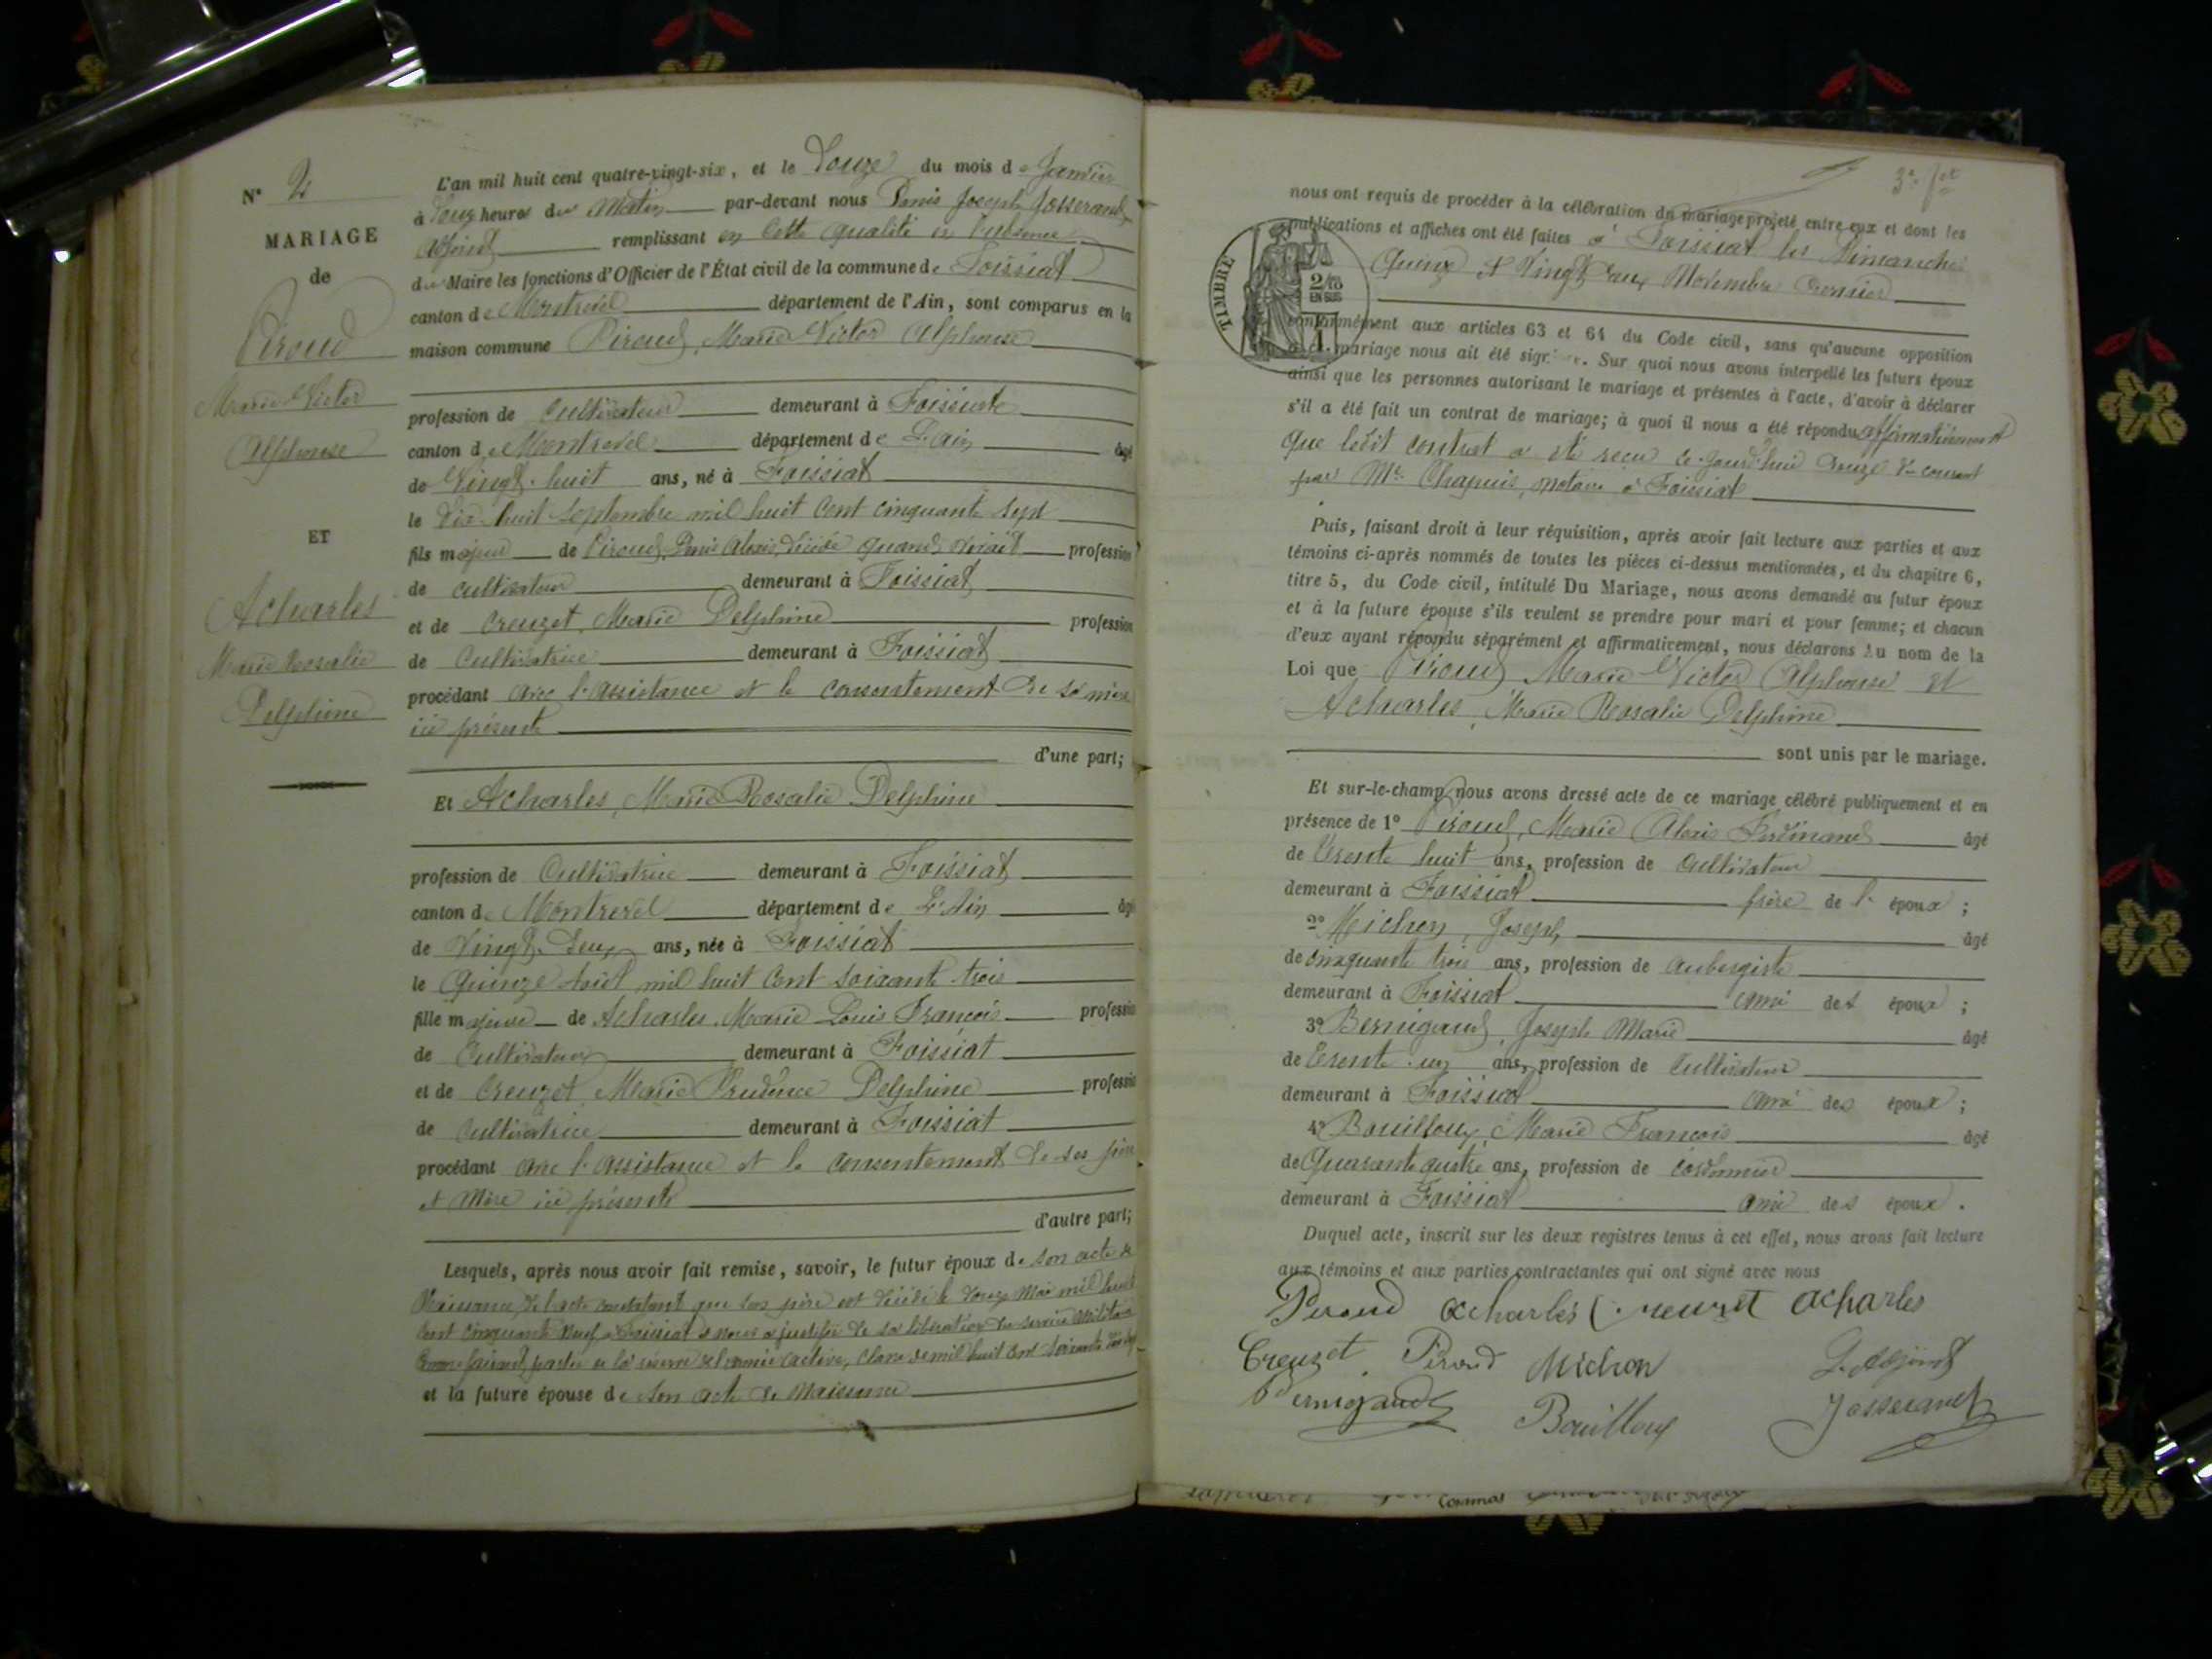 N° 2
MARIAGE
de
Piroud
Marie Victor
Alphonse
ET
Acharles
Marie Rosalie
Delphine
L'an mil huit cent quatre-vingt-six, et le Douze du mois de Janvier
à heures du Matin par-devant nous Denis Joseph Josserand
adjoint remplissant en cette qualité en l'absence
du Maire les fonctions d'Officier de l'État civil de la commune de Foissiat
canton de Montrevel département de l'Ain, sont comparus en la
maison commune Piroud, Marie Victor Alphonse
profession de Cultivateur demeurant à Foissiat
canton de Montrevel département de L'Ain âgé
de Vingt-huit ans, né à Foissiat
le Dix-huit Septembre mil huit cent cinquante sept
fils majeur de Piroud, Denis Alexis, décédé quand vivait profession
de cultivateur demeurant à Foissiat
et de Creuzet, Marie Delphine profession
de Cultivatrice demeurant à Foissiat
procédant avec l'assistance et le consentement de sa mère
ici présente
d'une part;
Et Acharles, Marie Rosalie Delphine
profession de Cultivatrice demeurant à Foissiat
canton de Montrevel département de L'Ain âgé
de Vingt-Deux ans, née à Foissiat
le Quinze Août mil huit cent soixante-trois
fille majeure de Acharles, Marie Louis François profession
de Cultivateur demeurant à Foissiat
et de Creuzet, Marie Prudence Delphine profession
de Cultivatrice demeurant à Foissiat
procédant avec l'assistance et le consentement de ses père
et mère ici présents
d'autre part;
Lesquels, après nous avoir fait remise, savoir, le futur époux de son acte de
Naissance, de l'acte constatant que son père est décédé le Douze Mai mil huit
cent cinquante neuf à Foissiat et nous a justifié de sa libération du service militaire
comme faisant partie de la réserve de l'armée active, classe de mil huit cent soixante dix sept
et la future épouse de son acte de Naissance
3e fet
nous ont requis de procéder à la célébration du mariage projeté entre eux et dont les
publications et affiches ont été faites à Foissiat les Dimanches
Quinze et Vingt deux Novembre dernier
TIMBRE
2/10
EN SUS
conformément aux articles 63 et 64 du Code civil, sans qu'aucune opposition
mariage nous ait été sig. Sur quoi nous avons interpellé les futurs époux
ainsi que les personnes autorisant le mariage et présentes à l'acte, d'avoir à déclarer
s'il a été fait un contrat de mariage; à quoi il nous a été répondu affirmativement
que ledit contrat a été reçu ce-jourd'hui Douze du courant
par Me Chapuis, notaire à Foissiat
Puis, faisant droit à leur réquisition, après avoir fait lecture aux parties et aux
témoins ci-après nommés de toutes les pièces ci-dessus mentionnées, et du chapitre 6,
titre 5, du Code civil, intitulé Du Mariage, nous avons demandé au futur époux
et à la future épouse s'ils veulent se prendre pour mari et pour femme; et chacun
d'eux ayant répondu séparément et affirmativement, nous déclarons au nom de la
Loi que Piroud Marie Victor Alphonse et
Acharles, Marie Rosalie Delphine
sont unis par le mariage.
Et sur-le-champ nous avons dressé acte de ce mariage célébré publiquement et en
présence de 1° Piroud, Marie Alexis Ferdinand âgé
de Trente huit ans, profession de cultivateur
demeurant à Foissiat frère de l' époux;
2° Michon, Joseph âgé
de cinquante trois ans, profession de aubergiste
demeurant à Foissiat ami des époux;
3° Bernigaud, Joseph Marie âgé
de Trente-un ans, profession de Cultivateur
demeurant à Foissiat ami des époux;
4° Bouilloux, Marie François âgé
de Quarante quatre ans, profession de cordonnier
demeurant à Foissiat ami des époux.
Duquel acte, inscrit sur les deux registres tenus à cet effet, nous avons fait lecture
aux témoins et aux parties contractantes qui ont signé avec nous
Piroud acharles Creuzet acharles
Creuzet Piroud Michon L'adjoint
Bernigaud Bouilloux Josserand